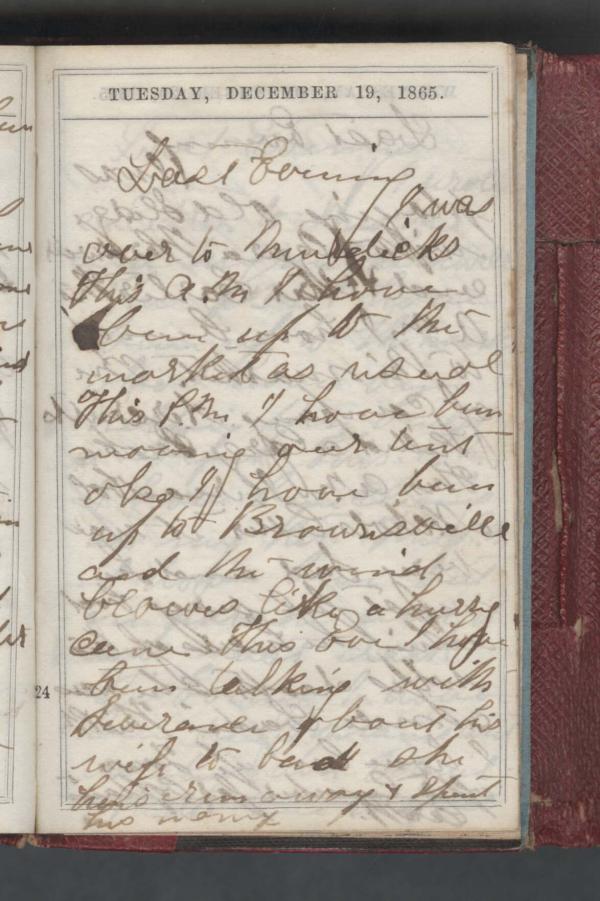 TUESDAY, DECEMBER 19, 1865.
Last Evening
I was
over to Murdicks
This A.M I have
been up to the
market as usual
This P.M. I have bin
moving our tent
also I have bin
up to Brownsville
and the wind
blowes like a hurry
cane This Eve I have
bin talking with
about his
wife to bad she
has run away & spent
his money
24